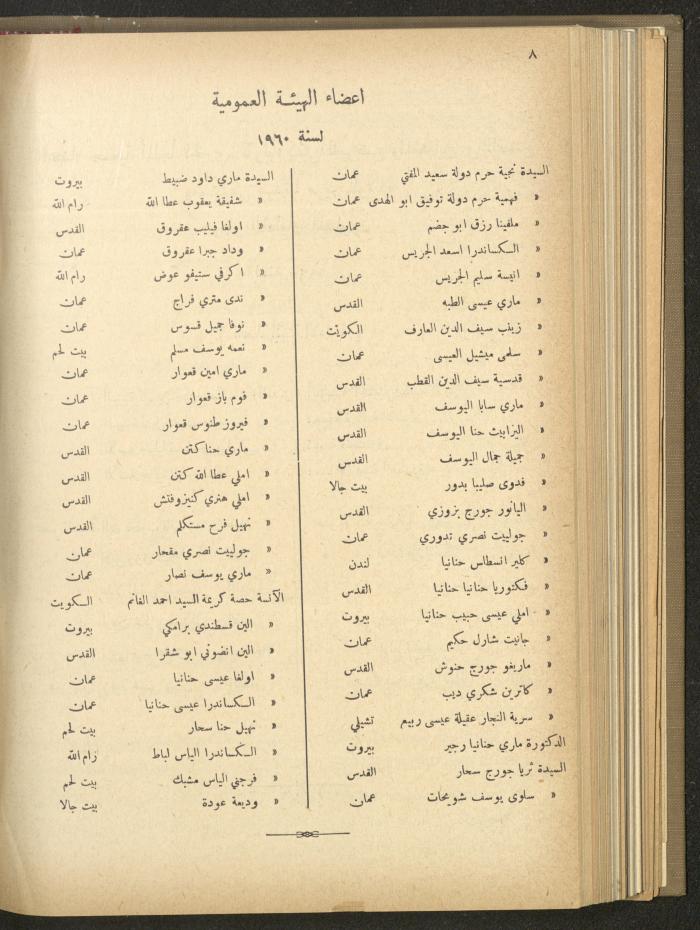 ٨
اعضاء الهيئة العمومية
لسنة ١٩٦٠
السيدة نجية حرم دولة سعيد المفتي عمان
« فهمية حرم دولة توفيق ابو الهدى عمان
« ملفينا رزق ابو جضم عمان
« الكساندرا اسعد الجريس عمان
« انيسة سليم الجريس عمان
« ماري عيسى الطبه القدس
« زينب سيف الدين العارف الكويت
« سلمى ميشيل العيسى عمان
« قدسية سيف الدين القطب القدس
« ماري سابا اليوسف القدس
« اليزابيث حنا اليوسف القدس
« جميلة جمال اليوسف القدس
« فدوى صليبا بدور بيت جالا
« اليانور جورج بزوزي القدس
« جولييت نصري تدوري عمان
« كلير انسطاس حنانيا لندن
« فكتوريا حنانيا حنانيا القدس
« املي عيسى حبيب حنانيا بيروت
« جانيت شارل حكيم عمان
« ماريغو جورج حنوش القدس
« كاترين شكري ديب عمان
« سرية النجار عقيلة عيسى ربيع تشيلي
الدكتورة ماري حنانيا رجير بيروت
السيدة ثريا جورج سحار القدس
« سلوى يوسف شويحات عمان
السيدة ماري داود ضبيط بيروت
« شفيقة يعقوب عطا الله رام الله
« اولغا فيليب عقروق القدس
« وداد جبرا عقروق عمان
« اكرفي ستيفو عوض رام الله
« ندى متري فراج عمان
« نوفا جميل قسوس عمان
« نعمه يوسف مسلم بيت لحم
« ماري امين قعوار عمان
« فوم باز قعوار عمان
« فيروز طنوس قعوار عمان
« ماري حنا كتن القدس
« املي عطا الله كتن القدس
« املي هنري كنيزوفتش القدس
« نهيل فرح مستكلم القدس
« جولييت نصري مقحار عمان
« ماري يوسف نصار عمان
الآنسة حصة كريمة السيد احمد الغانم الكويت
« الين قسطندي برامكي بيروت
« الين انضوني ابو شقرا القدس
« اولغا عيسى حنانيا عمان
« الكساندرا عيسى حنانيا عمان
« نهيل حنا سحار بيت لحم
« الكساندرا الياس لباط رام الله
« فرجني الياس مشبك بيت لحم
« وديعة عودة بيت جالا